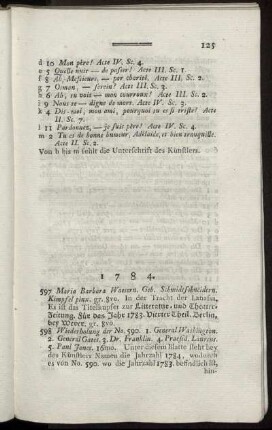 125
d 10 Mon père! Acte IV. Sc. 4.
e 5 Quelle nuit — de passer! Acte III. Sc. 1.
f 8 Ah, Messieurs, — par charité. Acte III. Sc. 2.
g 7 — Acte III. Sc. 3.
h 6 Ah, — mon courroux! Acte III. Sc. 2.
i 9 Nous — digne de mort. Acte IV. Sc. 2.
k 4 Dis-moi, mon ami, pourquoi es si triste? Acte
II. Sc. 7.
l 11 Pardonnez, — je suis père! Acte IV. Sc. 4.
m 2 Tu es de bonne humeur, Adélaide, et bien tranquille.
Acte II. Sc. 2.
Von b bis m fehlt die Unterschrift des Künstlers.
1784.
597 Maria Barbara Wäsern. Geb. Schmidtschneidern.
Kimpfel pinx. gr. 8vo. In der Tracht der Lanassa.
Es ist das Titelkupfer zur Litteratur- und Theater-
Zeitung. Für das Jahr 1783. Vierter Theil. Berlin,
bey Wever. gr. 8vo.
598 Wiederholung der No. 590. 1. General Washington.
2. General Gates. 3. Dr. Franklin. 4. Præsid. Laurens.
5. Paul Jones. 16mo. Unter diesem Blatte steht bey
des Künstlers Namen die Jahrzahl 1784, wodurch
es von No. 590. wo die Jahrzahl 1783. befindlich ist,
hin-